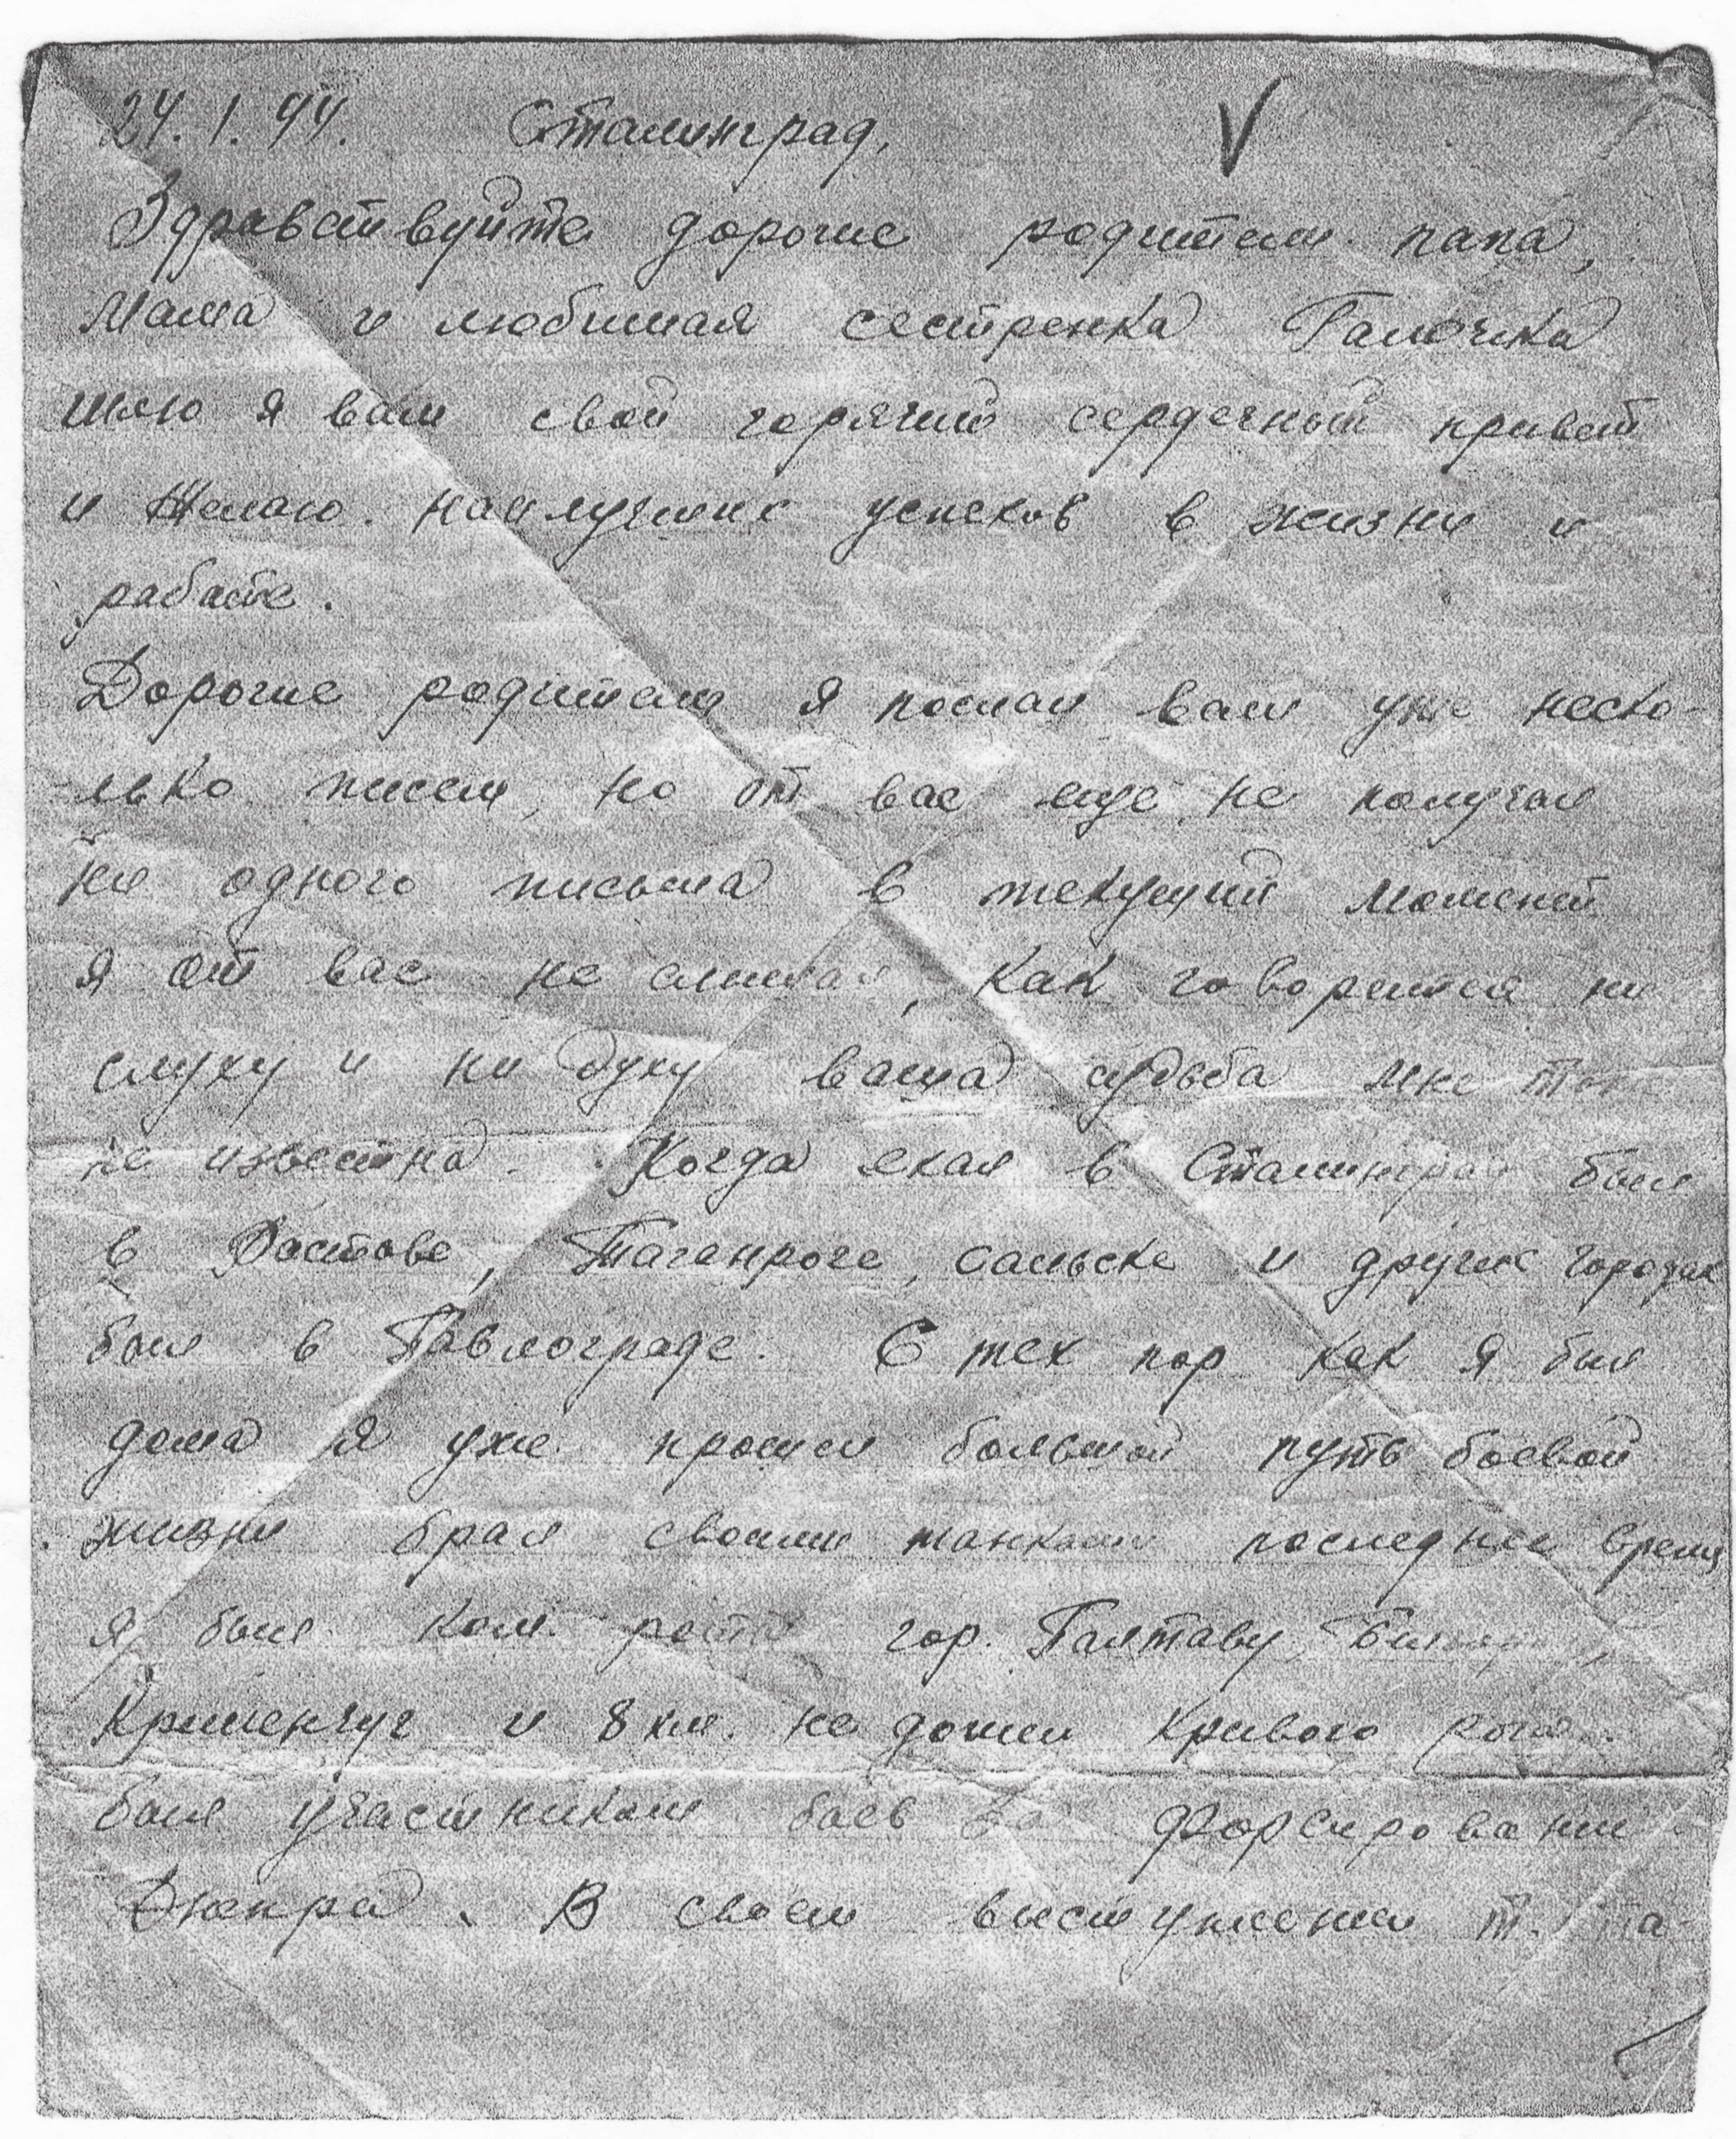 24.1.44. Сталинград,
Здравствуйте дорогие родители папа,
Мама и любимая сестренка Галочка
шлю я вам свой горячий сердечный привет
и Желаю. наилучших успехов в жизни и
рабате.
Дорогие родители я послал вам уже неско-
лько писем, но от вас еще не получал
не одного письма в текущий момент
я от вас не слыхал, как говорится ни
слуху и ни духу ваша судьба мне
не известна. Когда ехал в Сталинград был
в Растове, Таганроге, сальске и других городах
был в Павлограде. С тех пор как я был
дома я уже прошел большой путь боевой
жизни брал своими танками последнее время
я был ком. роты гор. Палтаву,
Крименчуг и 8 км. не дошел Кривого рога.
был участником боев За Форсировании
Днепра. В своем выступлении